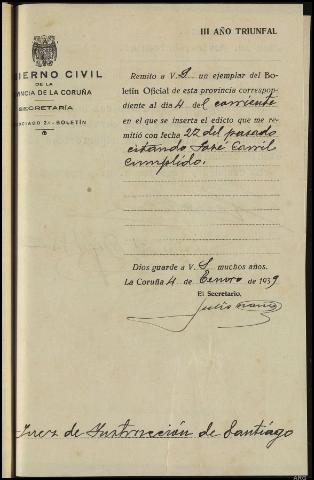 III AÑO TRIUNFAL
IERNO CIVIL
DE LA
INCIA DE LA CORUÑA
SECRETARÍA
OCIADO 2.º-BOLETÍN
Remito a V. S. un ejemplar del Bo-
letín Oficial de esta provincia correspon-
diente al día 4 del corriente
en el que se inserta el edicto que me re-
mitió con fecha 22 del pasado
citando José Carril
Cumplido.
Dios guarde a V. S. muchos años.
La Coruña 4 de Enero de 1939
El Secretario,
Juez de Instrucción de Santiago